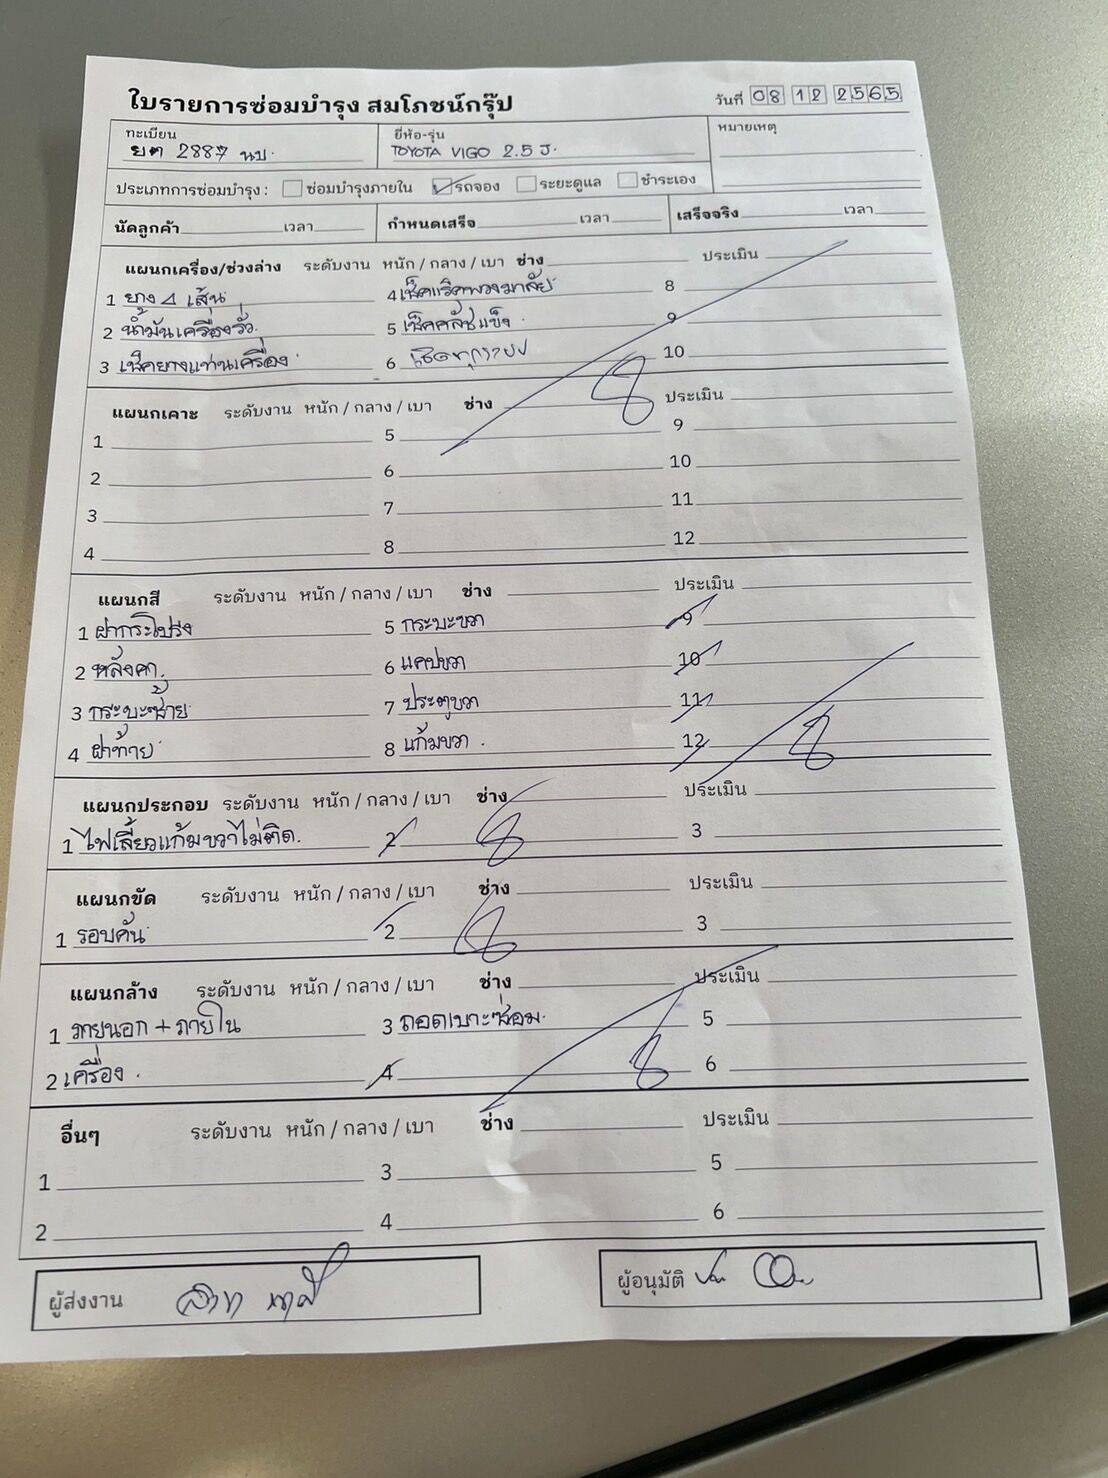 ใบรายการซ่อมบำรุง สมโภชน์กรุ๊ป
วันที่ 08 12 2565
ทะเบียน ยี่ห้อ-รุ่น หมายเหตุ
2887 TOYOTA VIGO 2.5 J.
ประเภทการซ่อมบำรุง : ซ่อมบำรุงภายใน รถจอง ระยะดูแล ชำระเอง
นัดลูกค้า เวลา กำหนดเสร็จ เวลา เสร็จจริง เวลา
แผนกเครื่อง/ช่วงล่าง ระดับงาน หนัก / กลาง / เบา ช่าง ประเมิน
1 ยาง 4 เส้น 4 เช็คแร็คพวงมาลัย 8
2 น้ำมันเครื่องรั่ว 5 เช็คคลัชแข็ง 9
3 เช็คยางแท่นเครื่อง 6 10
แผนกเคาะ ระดับงาน หนัก / กลาง / เบา ช่าง ประเมิน
1 5 9
2 6 10
3 7 11
4 8 12
แผนกสี ระดับงาน หนัก / กลาง / เบา ช่าง ประเมิน
1 ฝากระโปรง 5 กระบะขวา 9
2 หลังคา 6 แคปขวา 10
3 กระบะซ้าย 7 ประตูขวา 11
4 ฝาท้าย 8 แก้มขวา 12
แผนกประกอบ ระดับงาน หนัก / กลาง / เบา ช่าง ประเมิน
1 ไฟเลี้ยวแก้มขวาไม่ติด 2 3
แผนกขัด ระดับงาน หนัก / กลาง / เบา ช่าง ประเมิน
1 รอบคัน 2 3
แผนกล้าง ระดับงาน หนัก / กลาง / เบา ช่าง ประเมิน
1 ภายนอก + ภายใน 3 ถอดเบาะซ่อม 5
2 เครื่อง 4 6
อื่นๆ ระดับงาน หนัก / กลาง / เบา ช่าง ประเมิน
1 3 5
2 4 6
ผู้ส่งงาน ผู้อนุมัติ